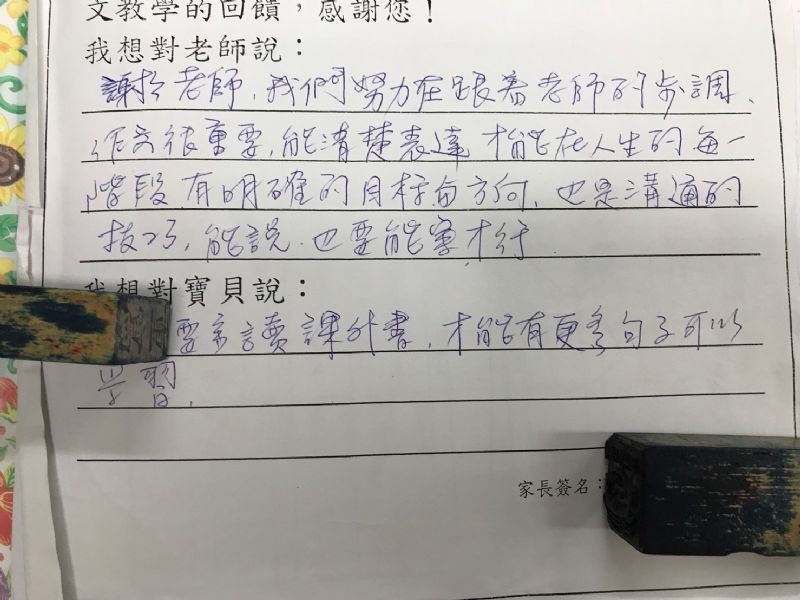 文教學的回饋，感謝您！
我想對老師說：
謝謝老師，我們努力在跟着老師的步調、
作文很重要，能清楚表達 才能在人生的每一
階段 有明確的目標與方向，也是溝通的
技巧，能說，也要能寫才行
我想對寶貝說：
要多讀課外書，才能有更多句子可以
學習.
家長簽名：